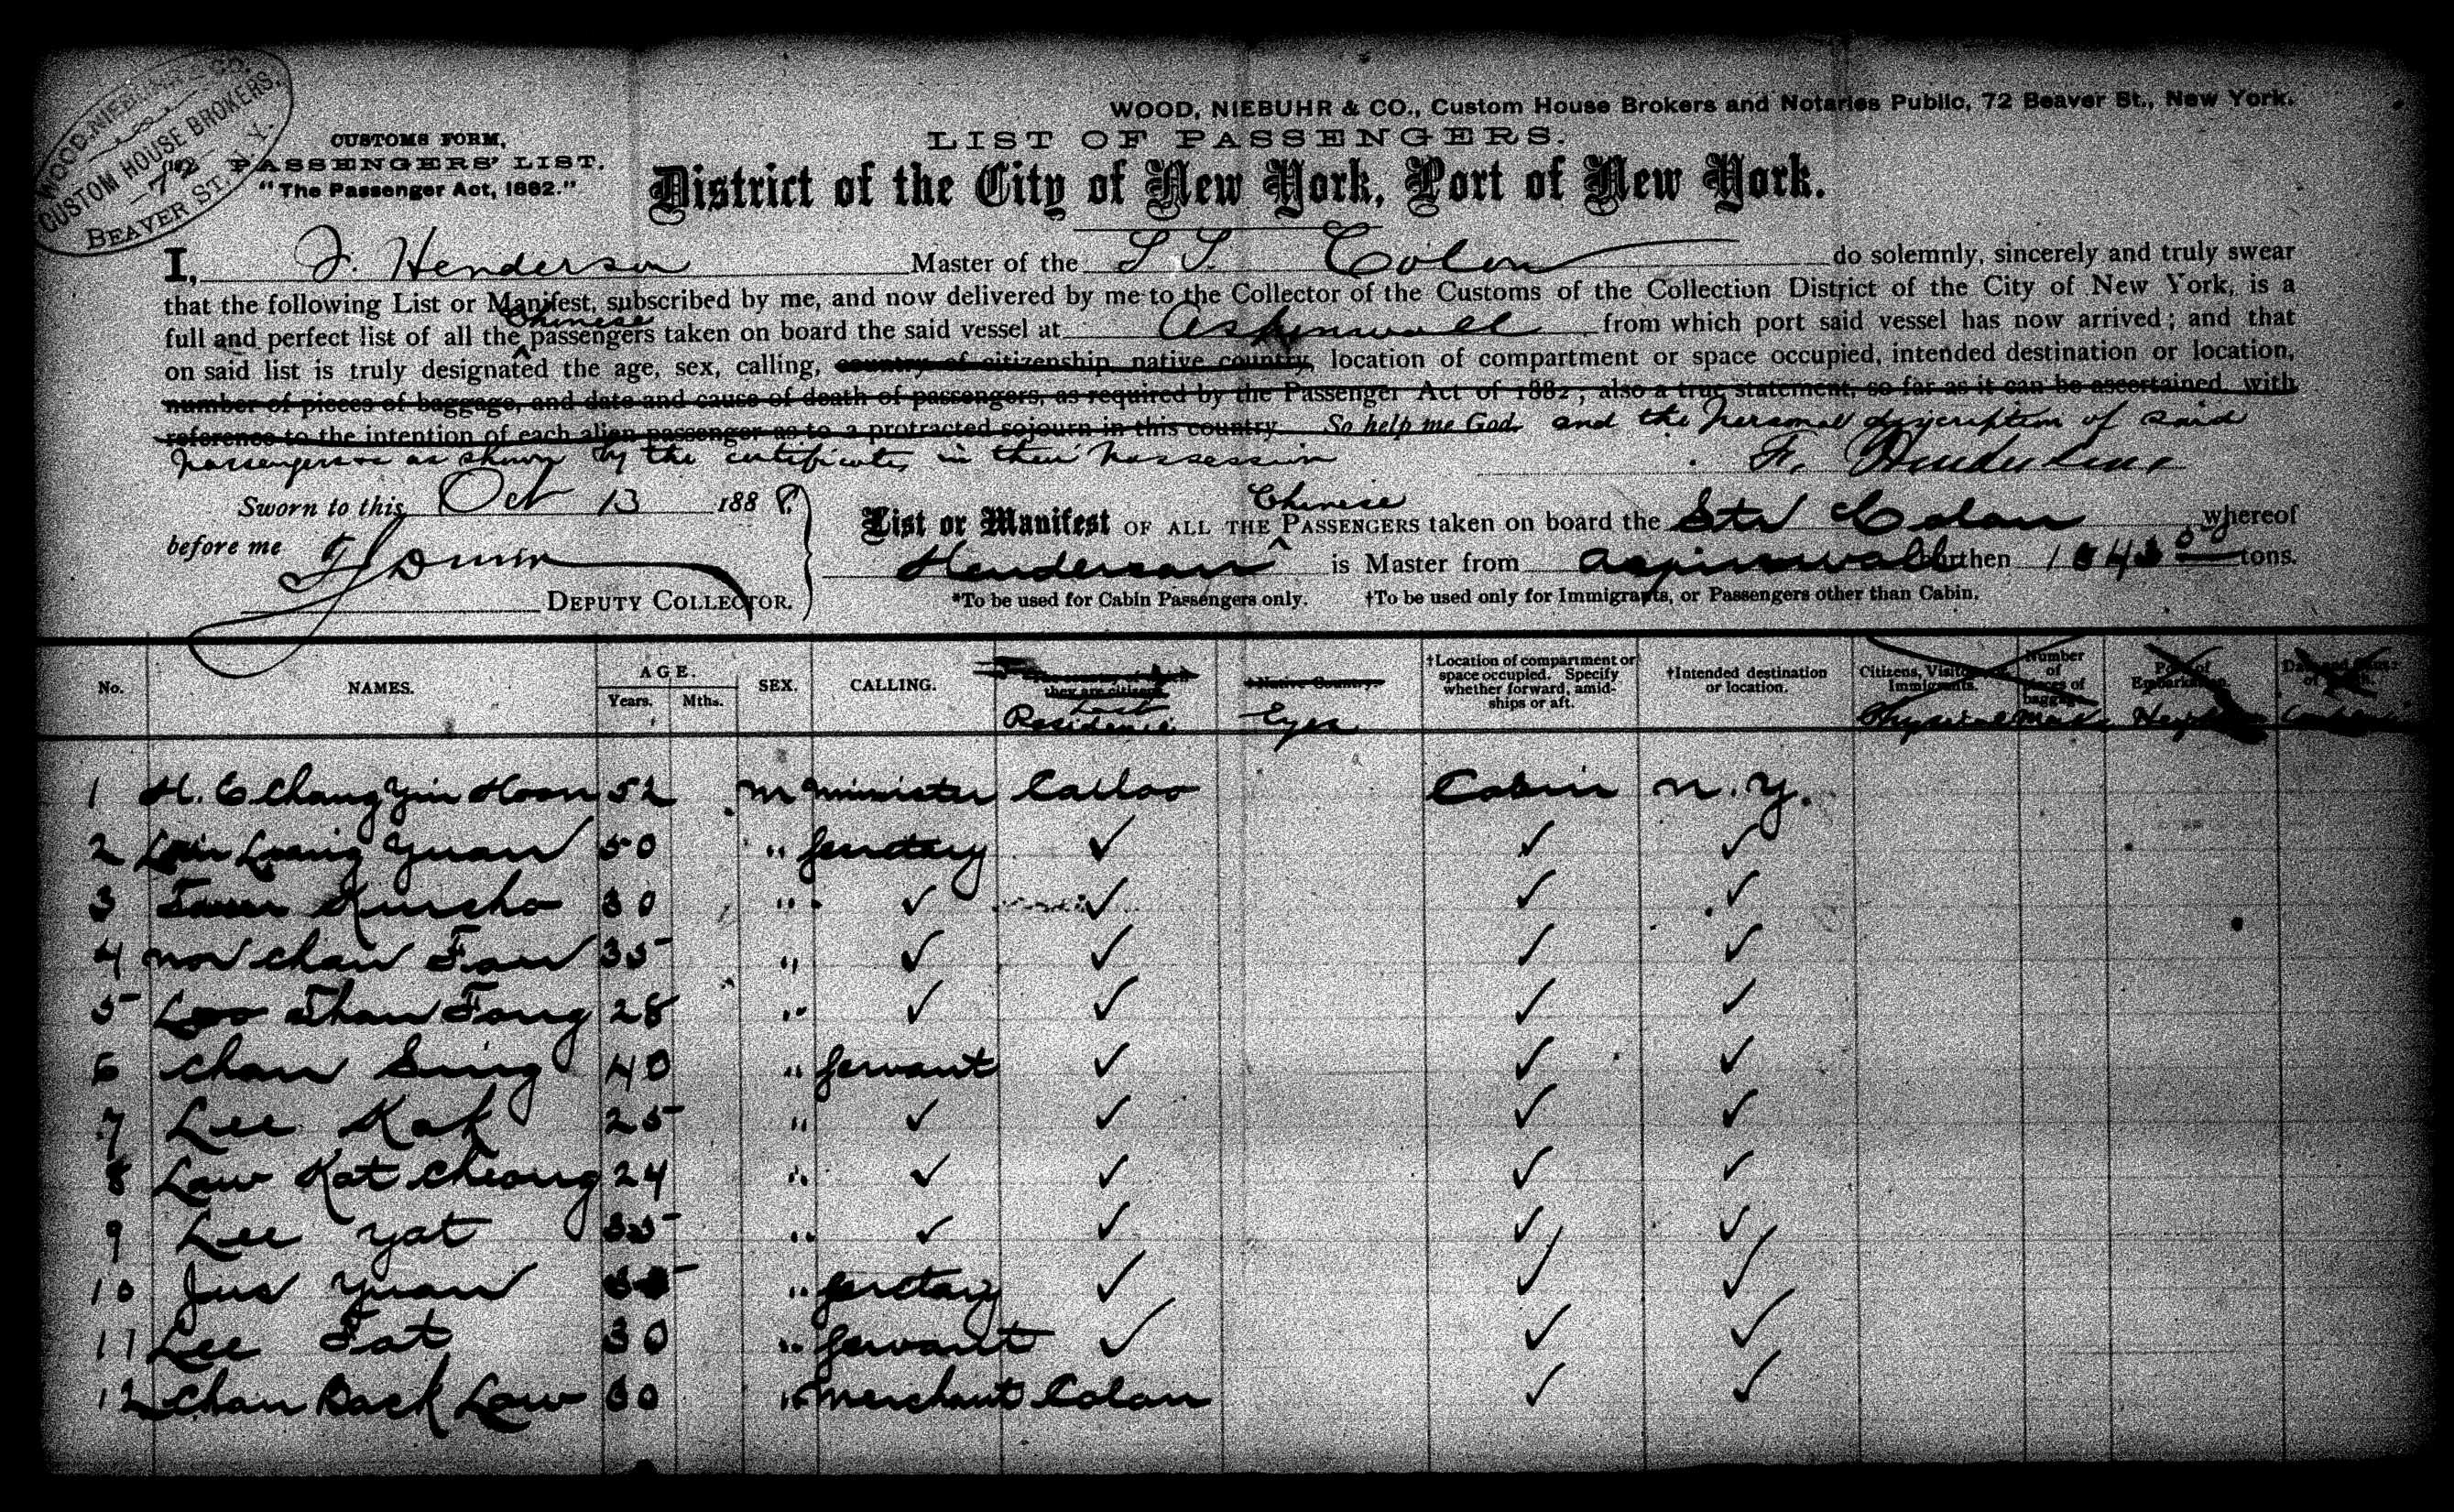 WOOD, NIEBUHR & CO.
CUSTOM HOUSE BROKERS,
72
BEAVER ST. N.Y.
WOOD, NIEBUHR & CO., Custom House Brokers and Notaries Public, 72 Beaver St., New York.
CUSTOMS FORM,
PASSENGERS' LIST.
"The Passenger Act, 1882."
LIST OF PASSENGERS.
District of the City of New York, Port of New York.
I, J. Henderson Master of the S S. Colon do solemnly, sincerely and truly swear
that the following List or Manifest, subscribed by me, and now delivered by me to the Collector of the Customs of the Collection District of the City of New York, is a
full and perfect list of all the Chinese passengers taken on board the said vessel at Aspinwall from which port said vessel has now arrived; and that
on said list is truly designated the age, sex, calling, country of citizenship, native country, location of compartment or space occupied, intended destination or location,
number of pieces of baggage, and date and cause of death of passengers, as required by the Passenger Act of 1882; also a true statement, so far as it can be ascertained, with
reference to the intention of each alien passenger as to a protracted sojourn in this country. So help me God. and the personal discription of said
passengers as shown by the certificates in their possession
Sworn to this Oct 13 1888
before me
DEPUTY COLLECTOR.
List or Manifest OF ALL THE Chinese PASSENGERS taken on board the Str Colon whereof
Henderson is Master from Aspinwall burthen tons.
*To be used for Cabin Passengers only. †To be used only for Immigrants, or Passengers other than Cabin.
No. NAMES. AGE. Years. Mths. SEX. CALLING. they are citizens Last Residence †Native Country. Eyes †Location of compartment or space occupied. Specify whether forward, amidships or aft. †Intended destination or location. Citizens, Immigrants. Physical Number of pieces of baggage Marks Port of Embarkation.
1 H. E Chang Yin Hoon 52 M Minister Callao Cabin N.Y.
2 Yuan 50 " Secretary ✓ ✓ ✓
3 Kurcho 30 " ✓ ✓ ✓ ✓
4 Mov Chaw Fow 35 " ✓ ✓ ✓ ✓
5 Loo Shaw Fong 28 " ✓ ✓ ✓ ✓
6 Chan Sing 40 " Servant ✓ ✓ ✓
7 Lee Kok 25 " ✓ ✓ ✓ ✓
8 Law Kat Cheong 24 " ✓ ✓ ✓ ✓
9 Lee Yat " ✓ ✓ ✓ ✓
10 Jus Yuan " Secretary ✓ ✓ ✓
11 Lee Fat 30 " Servant ✓ ✓ ✓
12 Chan Back Law 30 " Merchant Colon ✓ ✓